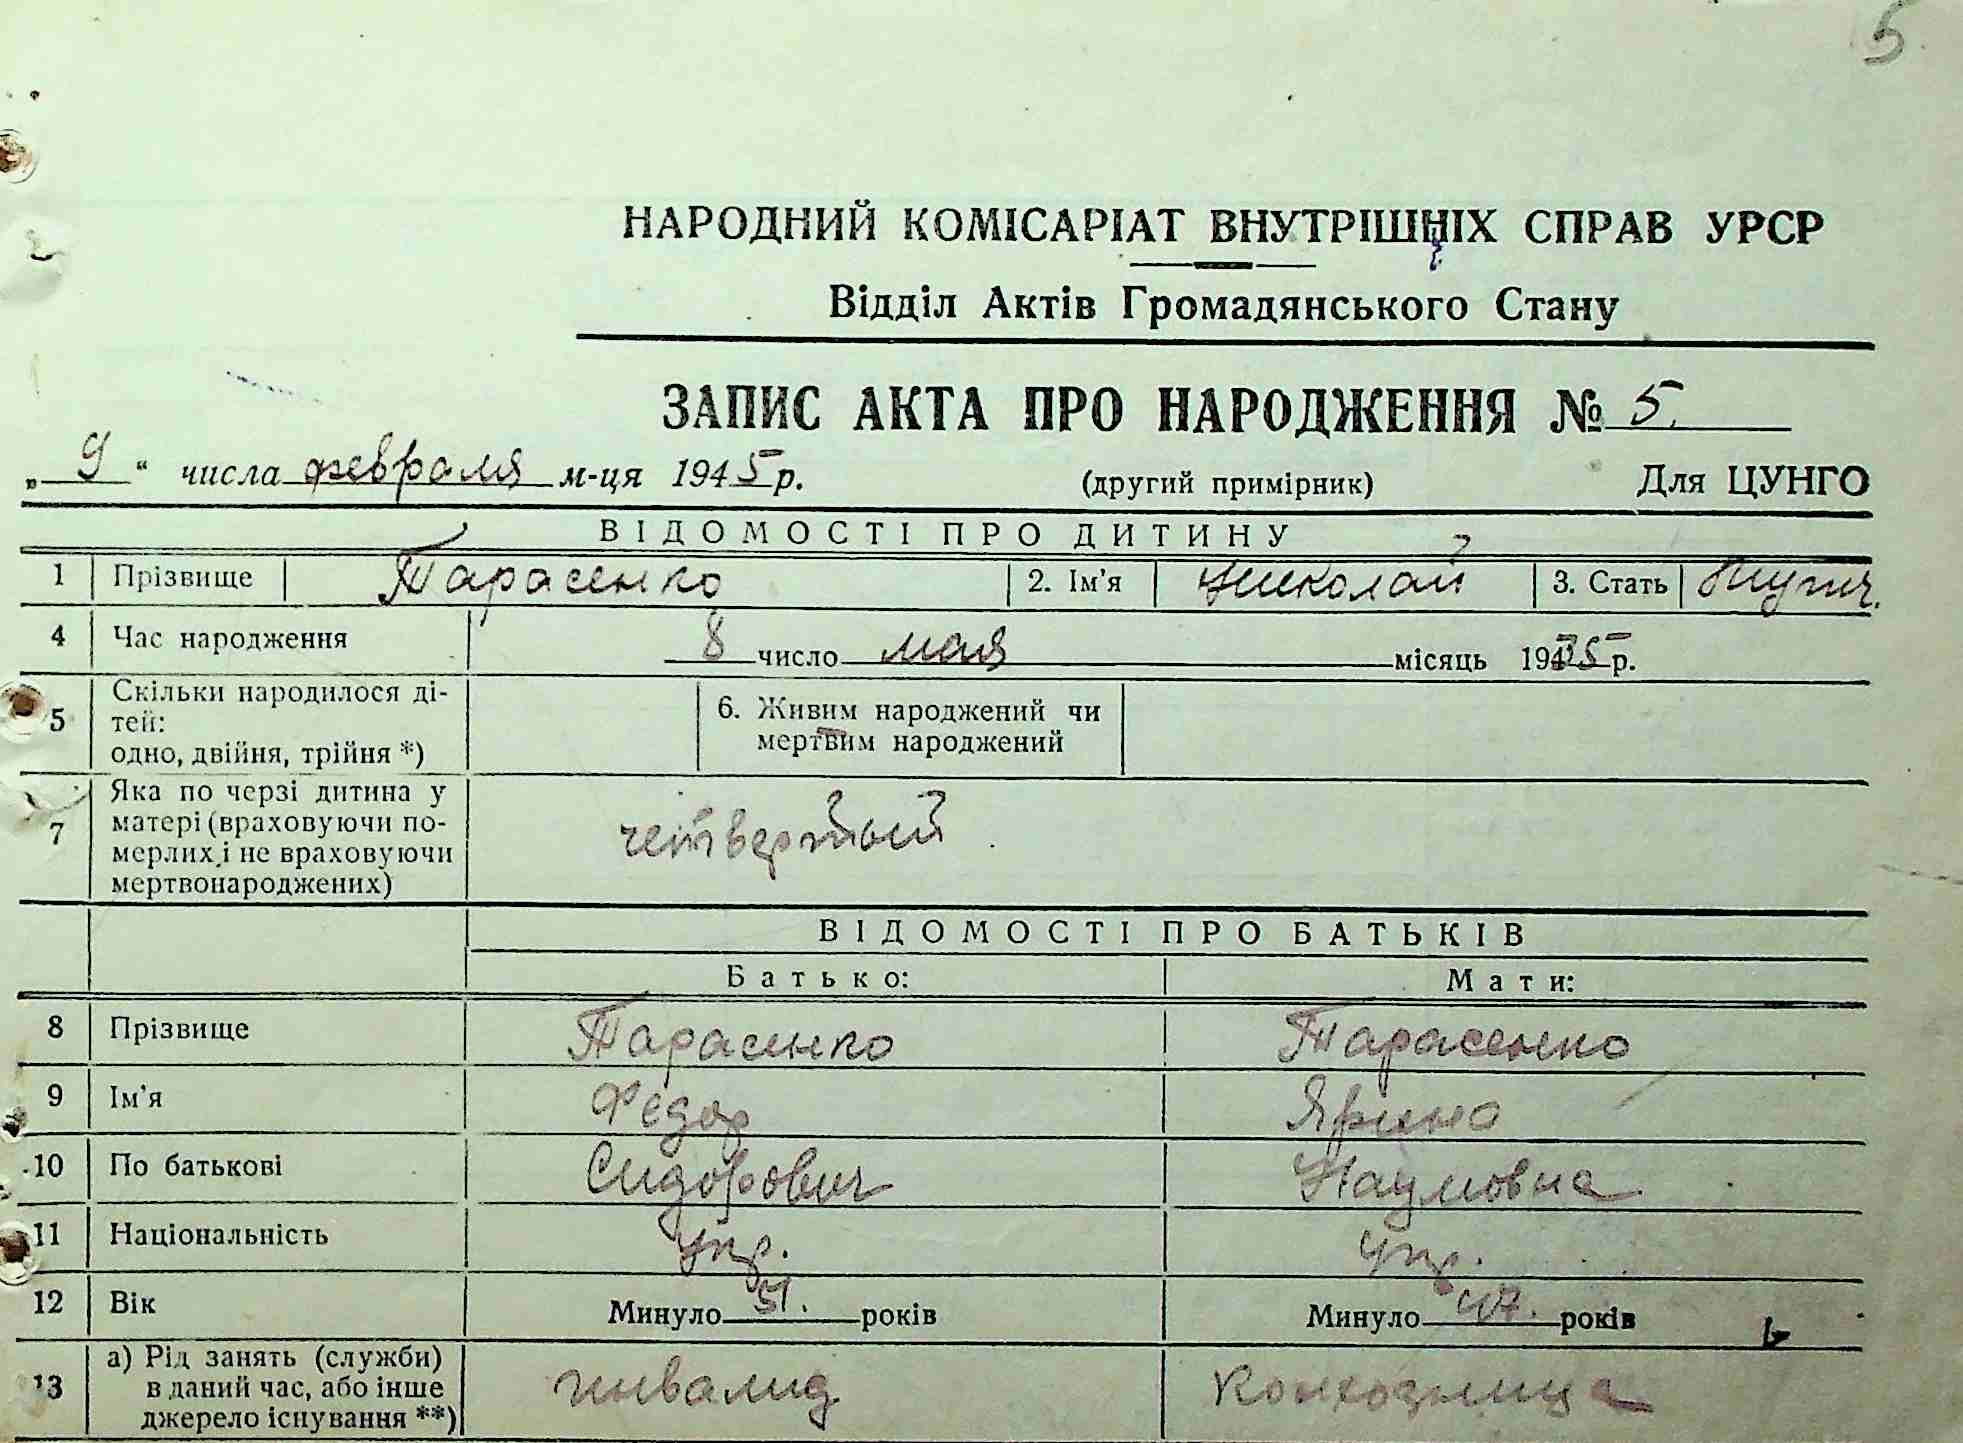 5
НАРОДНИЙ КОМІСАРІАТ ВНУТРІШНІХ СПРАВ УРСР
Відділ Актів Громадянського Стану
ЗАПИС АКТА ПРО НАРОДЖЕННЯ № 5.
„ 9 " числа февраля м-ця 1945 р. (другий примірник) Для ЦУНГО
ВІДОМОСТІ ПРО ДИТИНУ
1 Прізвище Тарасенко 2. Ім'я Николай 3. Стать
4 Час народження 8 число мая місяць 1935 р.
5 Скільки народилося ді-
тей:
одно, двійня, трійня *)
6. Живим народжений чи
мертвим народжений
7 Яка по черзі дитина у
матері (враховуючи по-
мерлих і не враховуючи
мертвонароджених)
четвертый
ВІДОМОСТІ ПРО БАТЬКІВ
Батько: Мати:
8 Прізвище Тарасенко Тарасенко
9 Ім'я Федор Ярина
10 По батькові Сидорович Наумовна
11 Національність укр. укр.
12 Вік Минуло 51. років Минуло 47. років
13 а) Рід занять (служби)
в даний час, або інше
джерело існування **)
инвалид колхозница